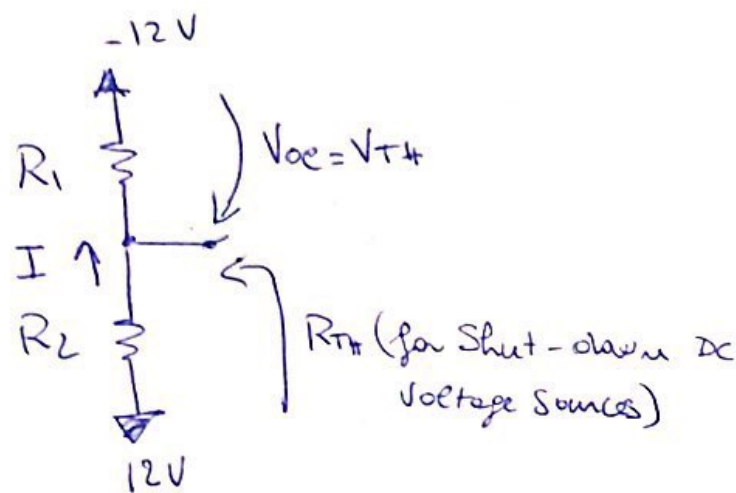 -12V
R1
VOC = VTH
I
R2
RTH (for Shut-down DC
Voltage Sources)
12V